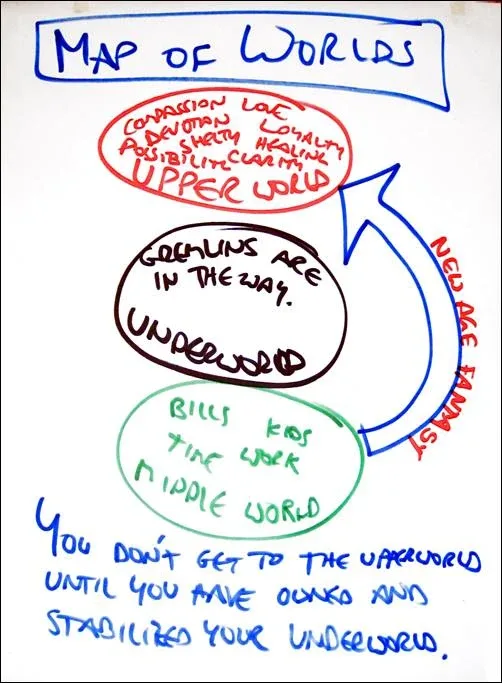 MAP OF WORLDS
COMPASSION LOVE
DEVOTION LOYALTY
SAFETY HEALING
POSSIBILITY CLARITY
UPPER WORLD
GREMLINS ARE
IN THE WAY.
UNDERWORLD
NEW AGE FANTASY
BILLS KIDS
TIME WORK
MIDDLE WORLD
YOU DON'T GET TO THE UPPERWORLD
UNTIL YOU HAVE OWNED AND
STABILIZED YOUR UNDERWORLD.